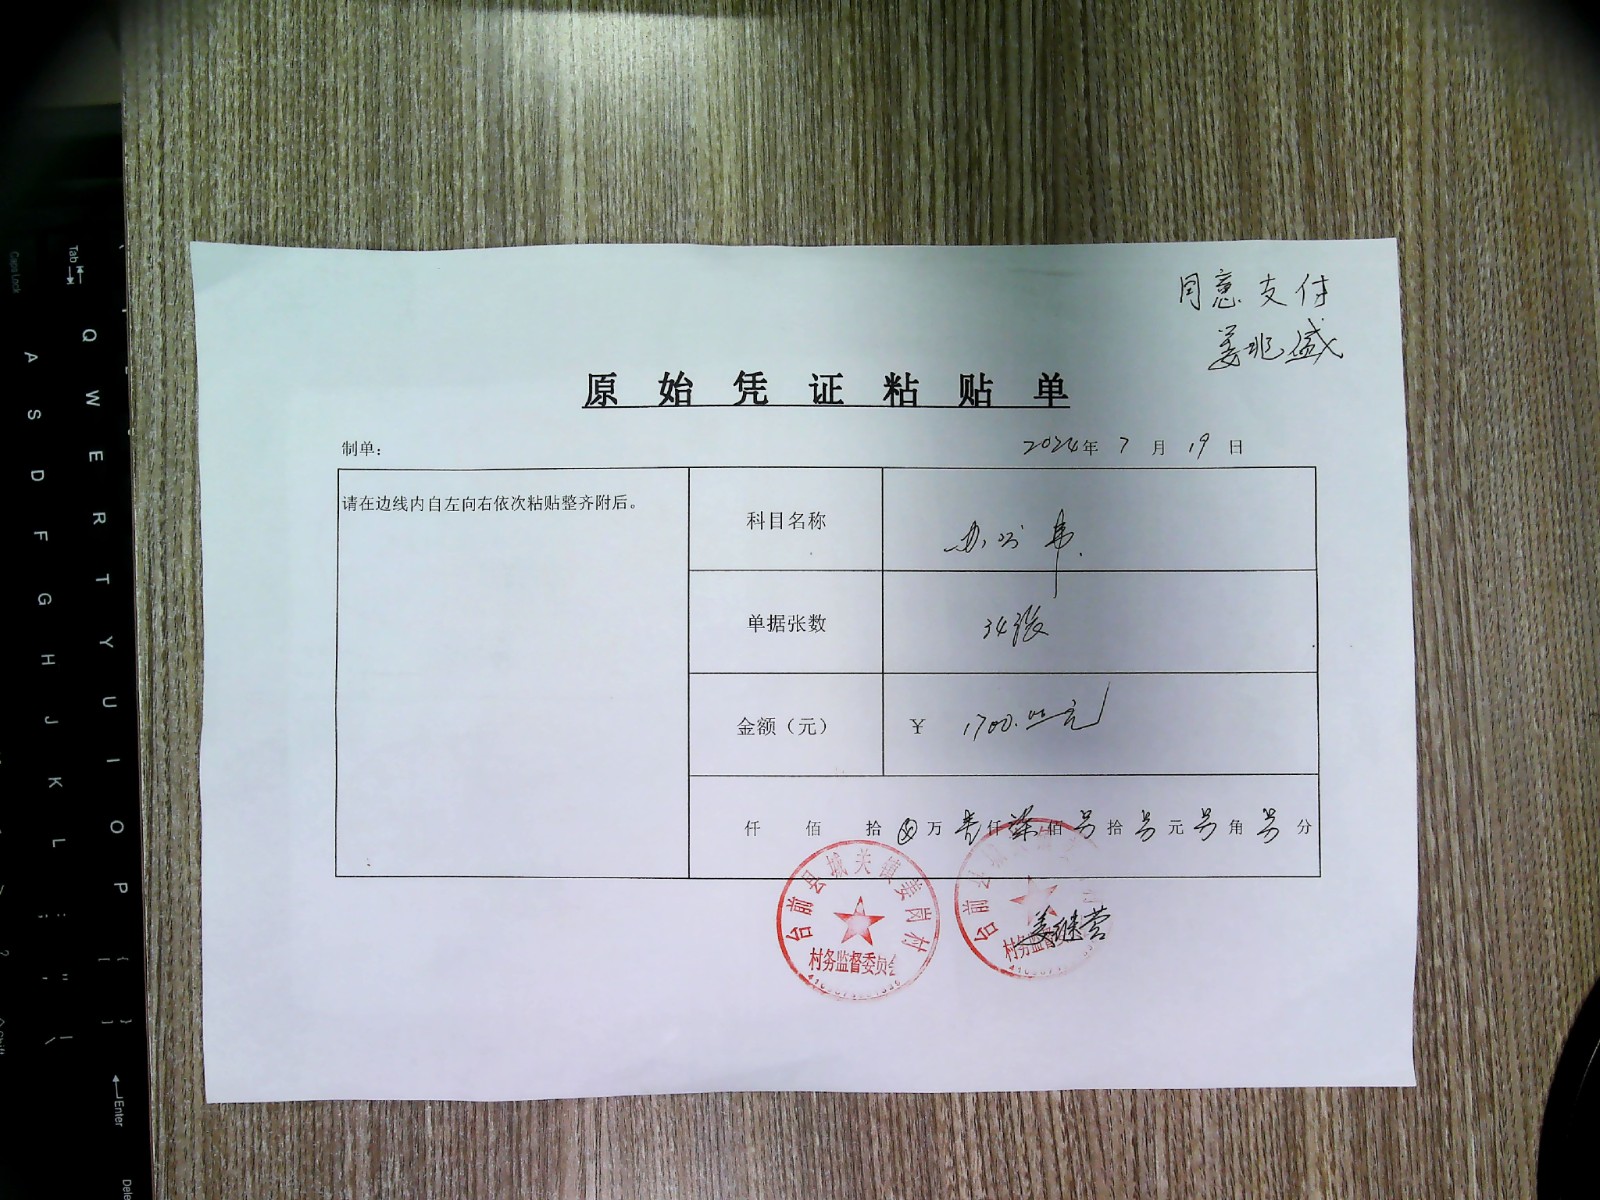 同意支付
姜兆盛
原始凭证粘贴单
制单:
2024年7月19日
请在边线内自左向右依次粘贴整齐附后。
科目名称 办公费
单据张数 34张
金额（元） ¥ 1700.00元
仟 佰 拾 万 壹仟 柒佰 另拾 另元 另角 另分
台前县城关镇姜岗村
村务监督委员会
台前县
村务监督
姜继营
Caps Lock
A S D F G H J K L
Tab
Q W E R T Y U I O P
Enter
Dele